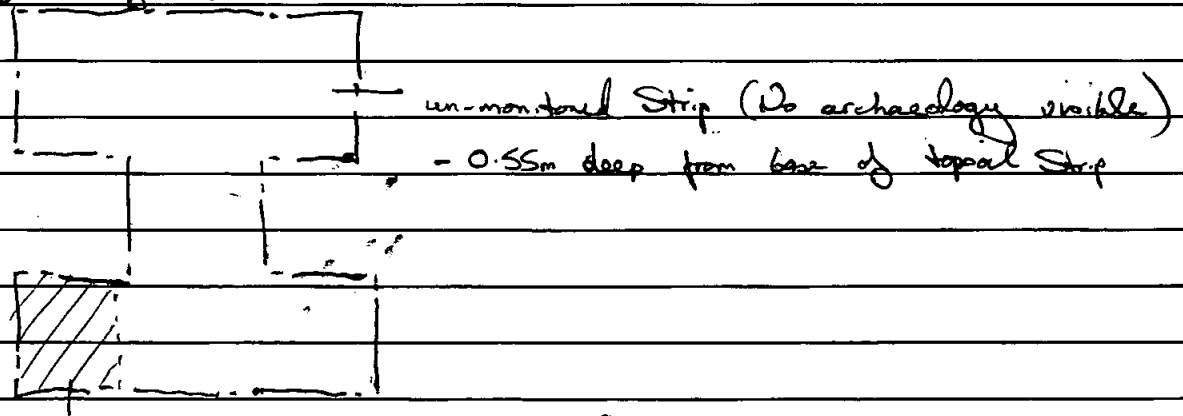 un-monitored Strip (No archaeology visible)
- 0.55m deep from base of topsoil Strip